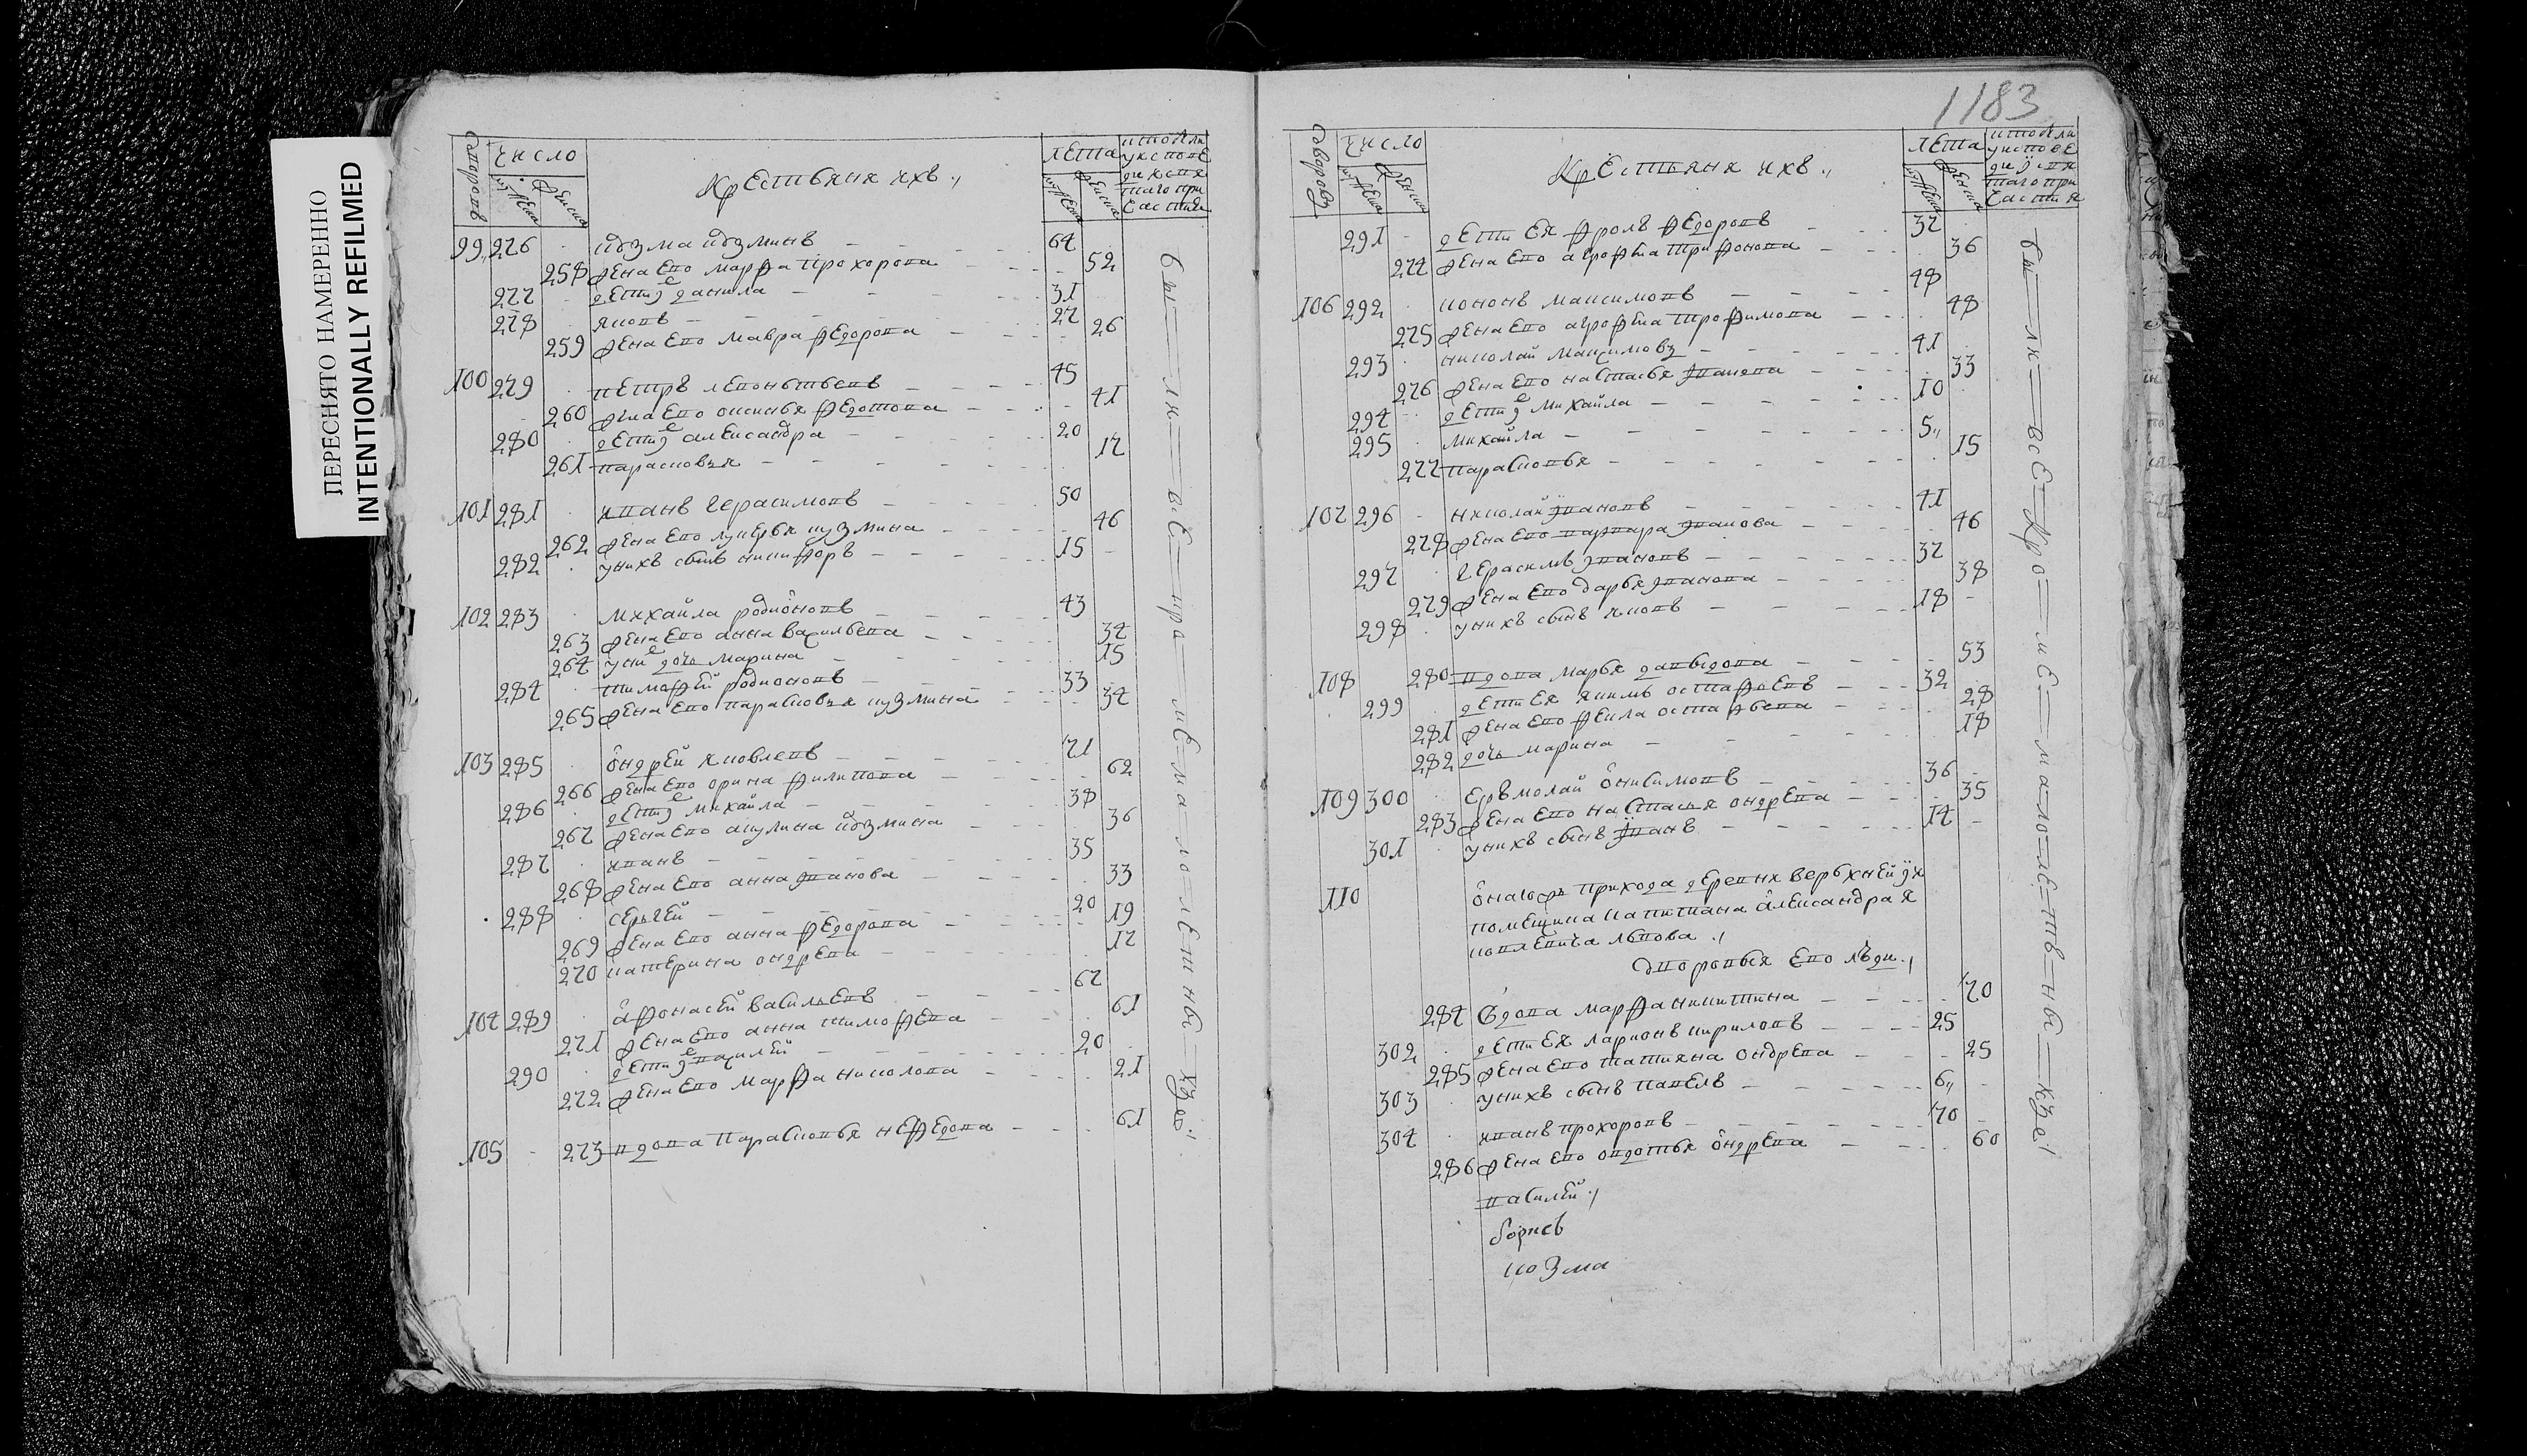 ПЕРЕСНЯТО НАМЕРЕННО
INTENTIONALLY REFILMED
число
Крестьяня ихъ
лета
99 276 кузма кузминъ 64
258 жена ево марфа прохорова 52
277 дети данила 31
278 яковъ 27
259 жена ево мавра федорова 26
100 279 петръ леоньтьевъ 45
260 жена ево оксинья федотова 41
280 дети александра 20
261 парасковья 17
101 281 иванъ герасимовъ 50
262 жена ево лукерья кузмина 46
282 у нихъ сынъ никифоръ 15
102 283 михайла родионовъ 43
263 жена ево анна васильева 34
264 у них дочь марина 15
284 тимофей родионовъ 33
265 жена ево парасковья кузмина 34
103 285 ондрей яковлевъ 71
266 жена ево орина филипова 62
286 дети михайла 38
267 жена ево акулина кузмина 36
287 иванъ 35
268 жена ево анна иванова 33
288 сергей 20
269 жена ево анна федорова 19
270 катерина ондрева 17
104 289 афонасей васильевъ 67
271 жена ево анна тимофева 61
290 дети василей 20
272 жена ево марфа николова 21
105 273 вдова парасковья нефедова 61
были все кроме малолетныхъ
1183
число
Крестьяня ихъ
лета
291 дети ея фролъ федоровъ 37
274 жена ево агрофена трифонова 36
106 292 кононъ максимовъ 48
275 жена ево агрофена трофимова 48
293 николай максимовъ 41
276 жена ево настасья иванова 33
294 дети михайла 10
295 михайла 5
277 парасковья 15
107 296 николай ивановъ 41
278 жена ево варвара иванова 46
297 герасимъ ивановъ 37
279 жена ево дарья иванова 38
298 у нихъ сынъ яковъ 18
108 280 вдова марья давыдова 53
299 дети ея якимъ остафьевъ 32
281 жена ево фекла остафьева 28
282 дочь марина 18
109 300 ермолай онисимовъ 36
283 жена ево настасья ондрева 35
301 у нихъ сынъ иванъ 14
110 онагожъ прихода деревни верхней
помещика капитана александра я
ковлевича львова
дворовыя ево люди
284 вдова марфа никитина 70
302 дети ея ларионъ кириловъ 25
285 жена ево татияна ондрева 25
303 у нихъ сынъ павелъ 6
304 иванъ прохоровъ 70
286 жена ево овдотья ондрева 60
василей
борисъ
козма
были все кроме малолетныхъ